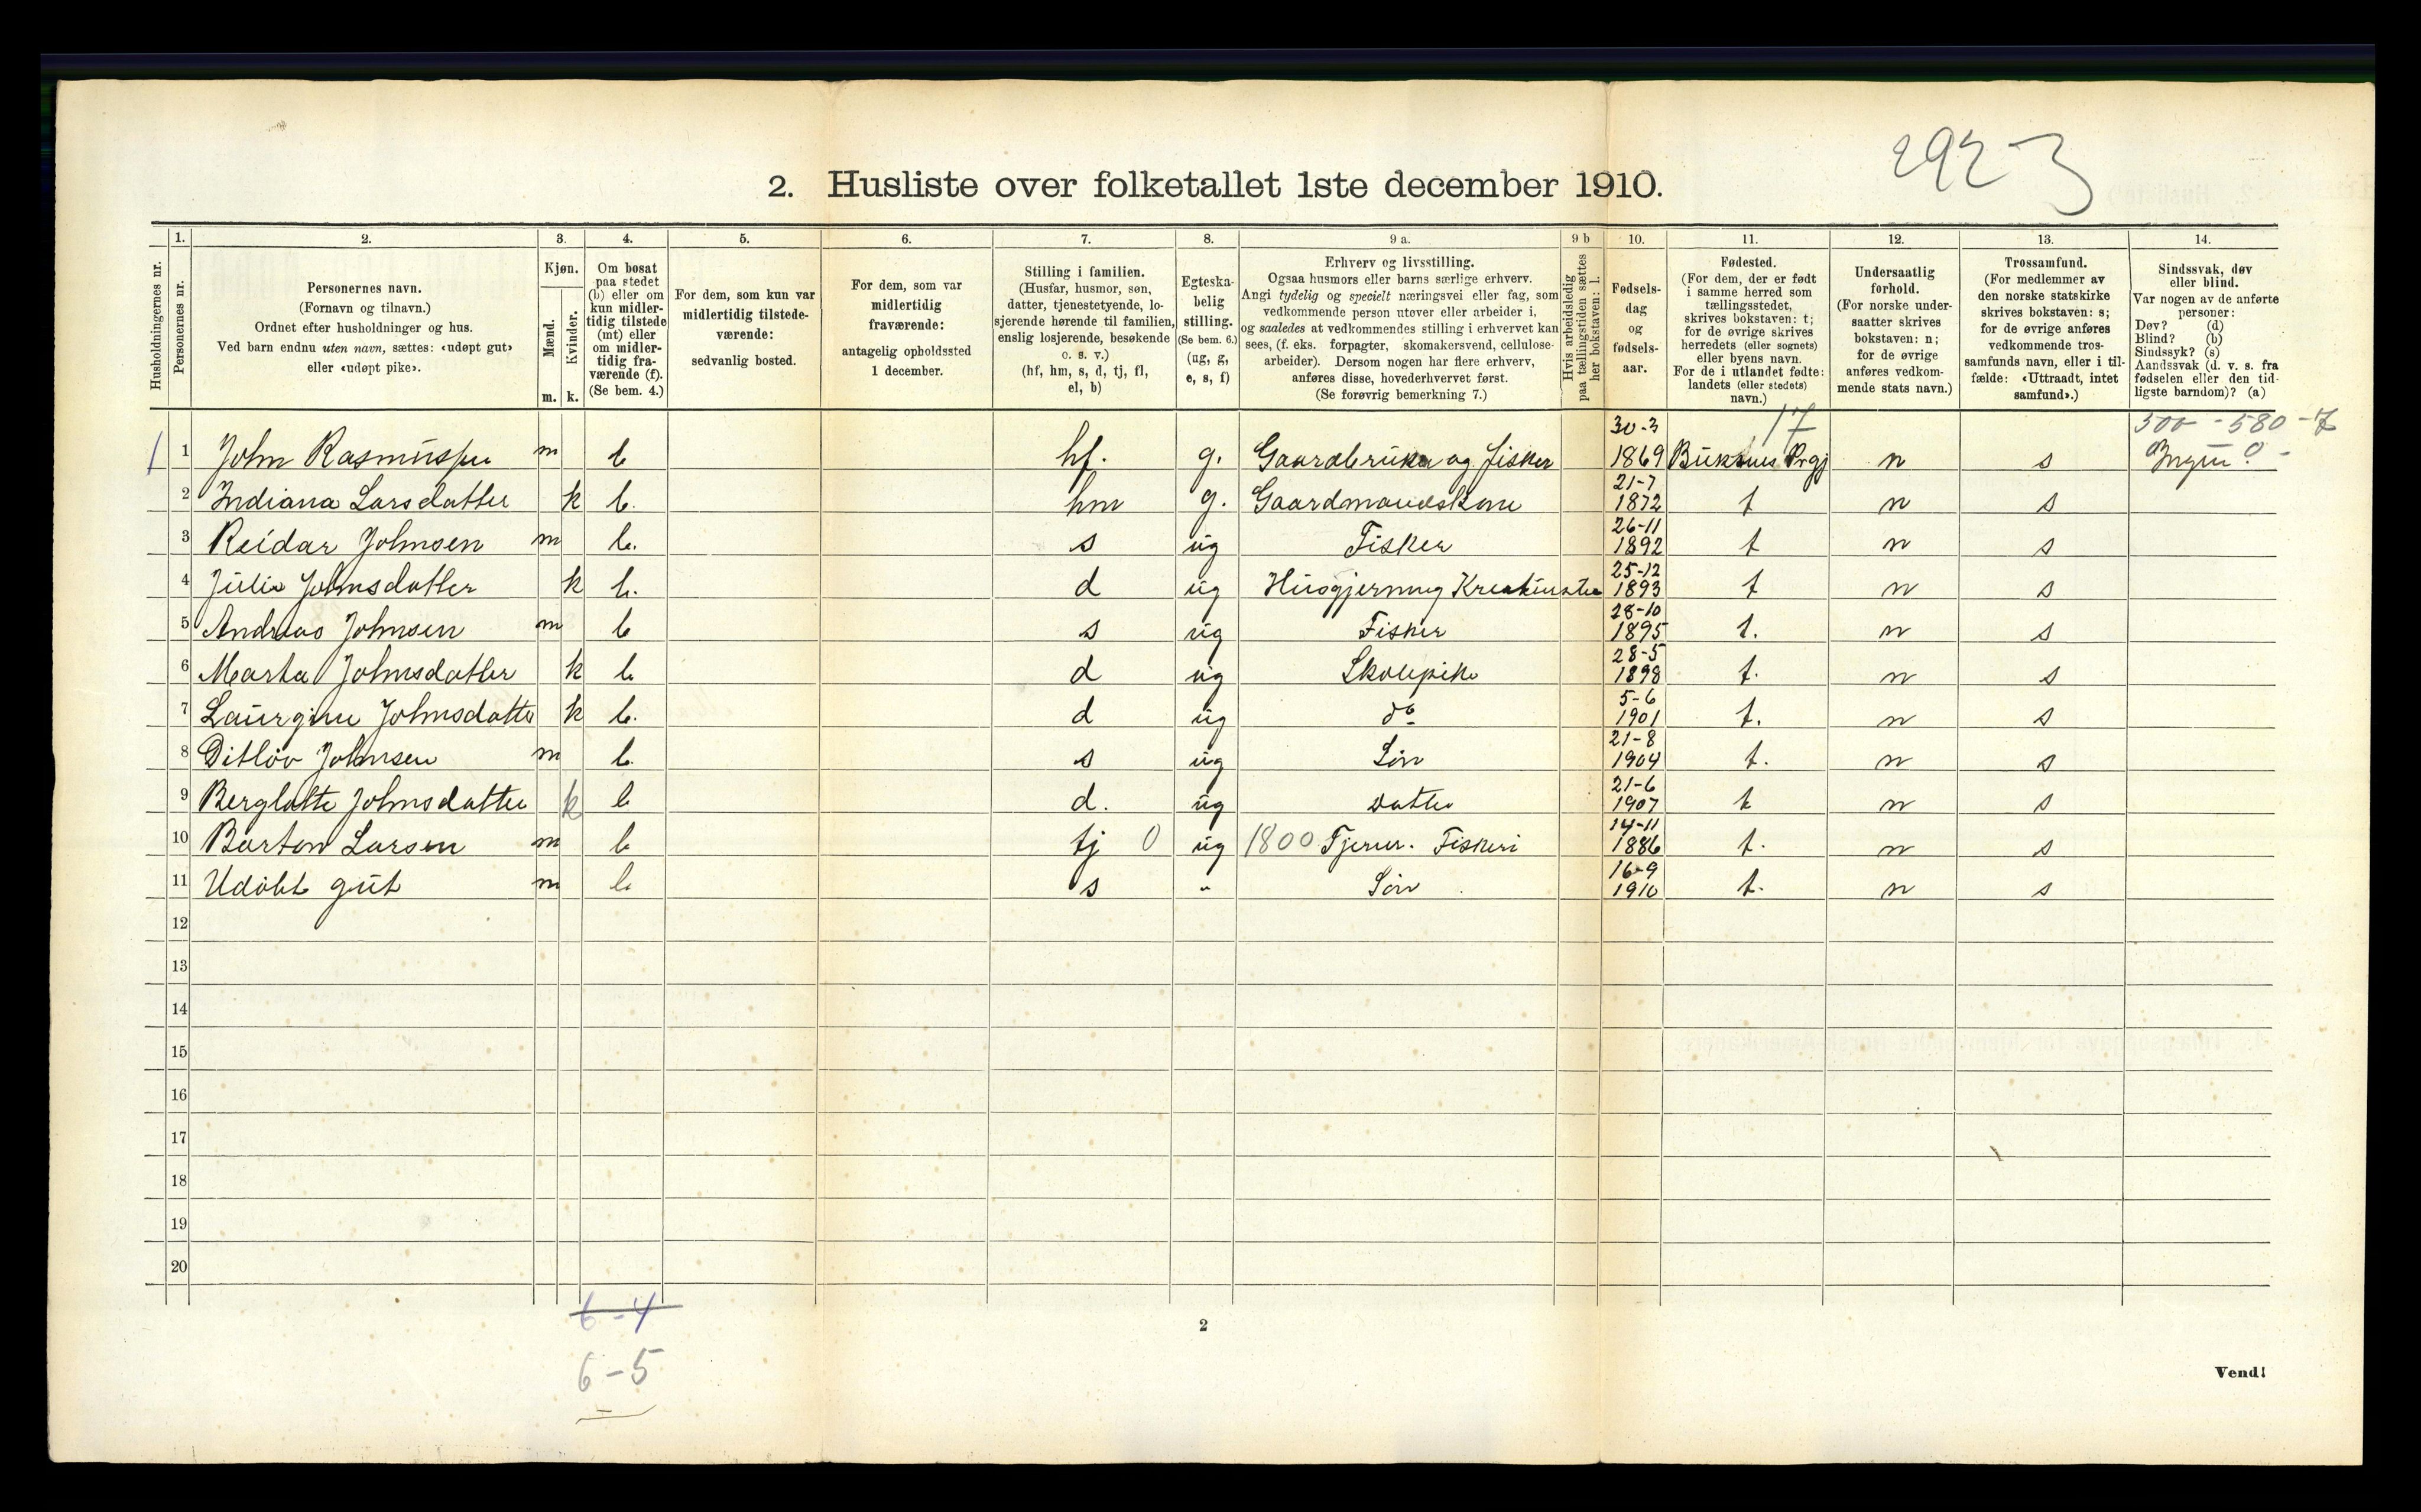 292-3
2. Husliste over folketallet 1ste december 1910.
1. 2. 3. 4. 5. 6. 7. 8. 9 a. 9 b 10. 11. 12. 13. 14.
Husholdningernes nr.
Personernes nr.
Personernes navn.
(Fornavn og tilnavn.)
Ordnet efter husholdninger og hus.
Ved barn endnu uten navn, sættes: «udøpt gut»
eller «udøpt pike».
Kjøn.
Mænd.
Kvinder.
m. k.
Om bosat
paa stedet
(b) eller om
kun midler-
tidig tilstede
(mt) eller
om midler-
tidig fra-
værende (f).
(Se bem. 4.)
For dem, som kun var
midlertidig tilstede-
værende:
sedvanlig bosted.
For dem, som var
midlertidig
fraværende:
antagelig opholdssted
1 december.
Stilling i familien.
(Husfar, husmor, søn,
datter, tjenestetyende, lo-
sjerende hørende til familien,
enslig losjerende, besøkende
o. s. v.)
(hf, hm, s, d, tj, fl,
el, b)
Egteska-
belig
stilling.
(Se bem. 6.)
(ug, g,
e, s, f)
Erhverv og livsstilling.
Ogsaa husmors eller barns særlige erhverv.
Angi tydelig og specielt næringsvei eller fag, som
vedkommende person utøver eller arbeider i,
og saaledes at vedkommendes stilling i erhvervet kan
sees, (f. eks. forpagter, skomakersvend, cellulose-
arbeider). Dersom nogen har flere erhverv,
anføres disse, hovederhvervet først.
(Se forøvrig bemerkning 7.)
Hvis arbeidsledig
paa tællingstiden sættes
her bokstaven: l.
Fødsels-
dag
og
fødsels-
aar.
Fødested.
(For dem, der er født
i samme herred som
tællingsstedet,
skrives bokstaven: t;
for de øvrige skrives
herredets (eller sognets)
eller byens navn.
For de i utlandet fødte:
landets (eller stedets)
navn.)
Undersaatlig
forhold.
(For norske under-
saatter skrives
bokstaven: n;
for de øvrige
anføres vedkom-
mende stats navn.)
Trossamfund.
(For medlemmer av
den norske statskirke
skrives bokstaven: s;
for de øvrige anføres
vedkommende tros-
samfunds navn, eller i til-
fælde: «Uttraadt, intet
samfund».)
Sindssvak, døv
eller blind.
Var nogen av de anførte
personer:
Døv? (d)
Blind? (b)
Sindssyk? (s)
Aandssvak (d. v. s. fra
fødselen eller den tid-
ligste barndom)? (a)
30-3 17 500 - 580 - 7
1 1 John Rasmussen m b hf. g. Gaardbruker og fisker 1869 Buksnes Prgj n s Ingen 0 -
21-7
2 Indiana Larsdatter k b. hm g. Gaardmandskone 1872 t n s
26-11
3 Reidar Johnsen m b. s ug Fisker 1892 t n s
25-12
4 Julie Johnsdatter k b. d ug Husgjerning Kreaturstel 1893 t n s
28-10
5 Andreas Johnsen m b s ug Fisker 1895 t. n s
28-5
6 Marta Johnsdatter k b d ug Skolepike 1898 t. n s
5-6
7 Laurgine Johnsdatter k b. d ug do 1901 t. n s
21-8
8 Ditløv Johnsen m b. s ug Søn 1904 t. n s
21-6
9 Berglotte Johnsdatter k b d. ug Datter 1907 t n s
14-11
10 Barton Larsen m b tj 0 ug 1800 Tjener. Fiskeri 1886 t. n s
16-9
11 Udöbt gut m b s " Søn 1910 t. n s
12
13
14
15
16
17
18
19
20
6-4
2
6-5
Vend!